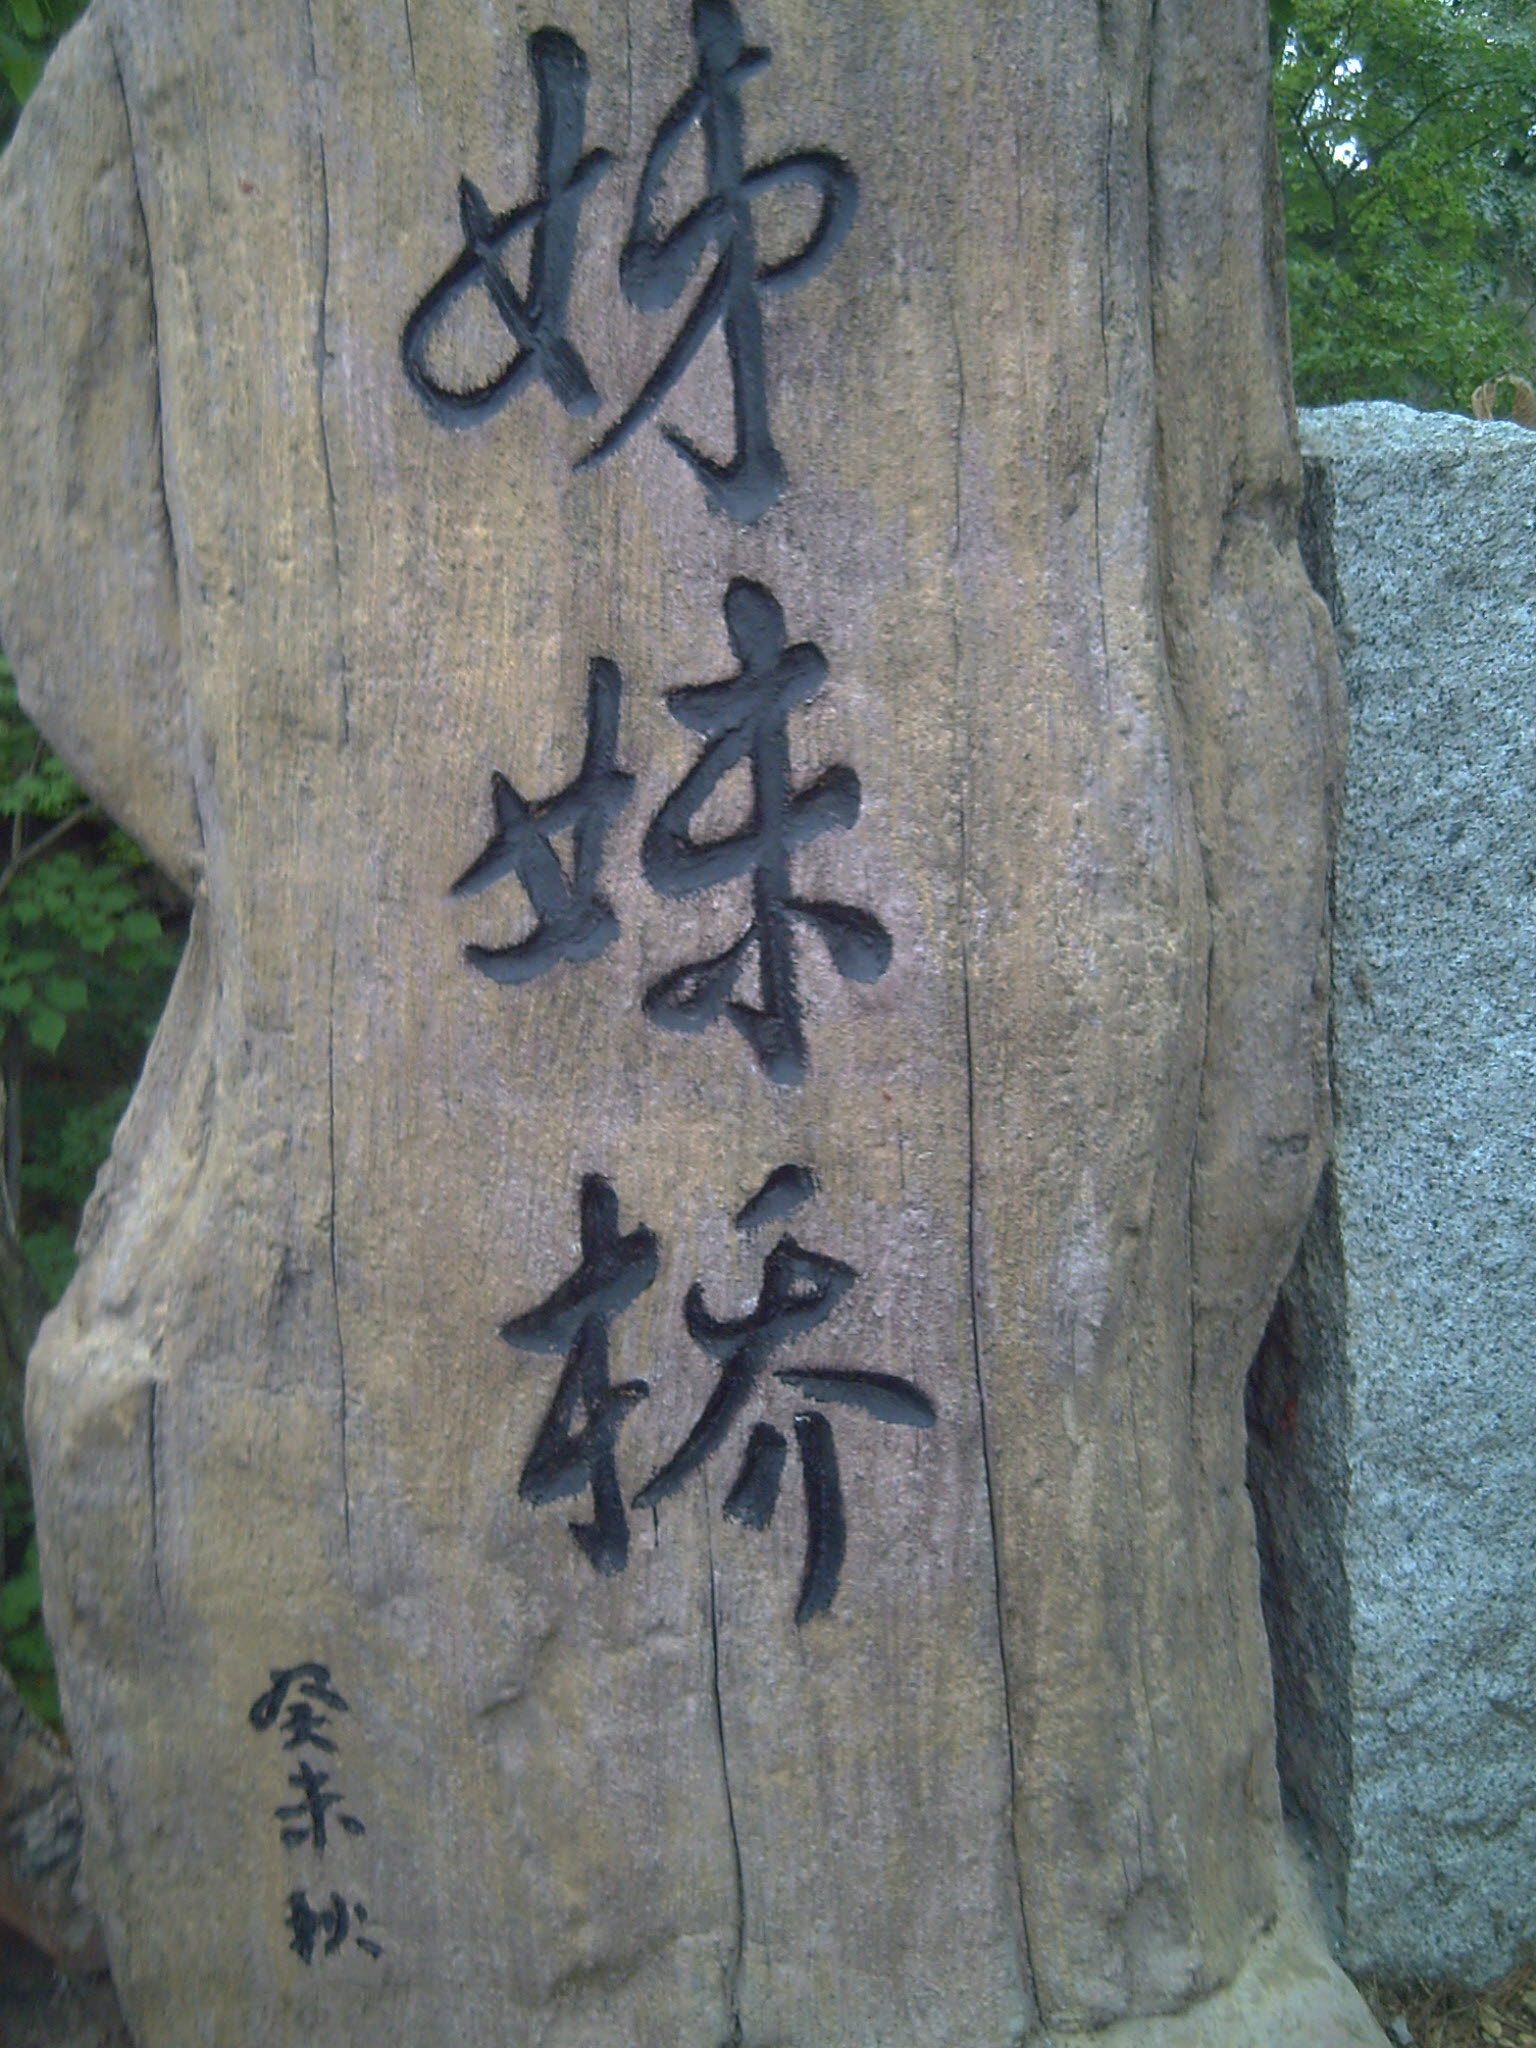 姊妹桥
癸未秋